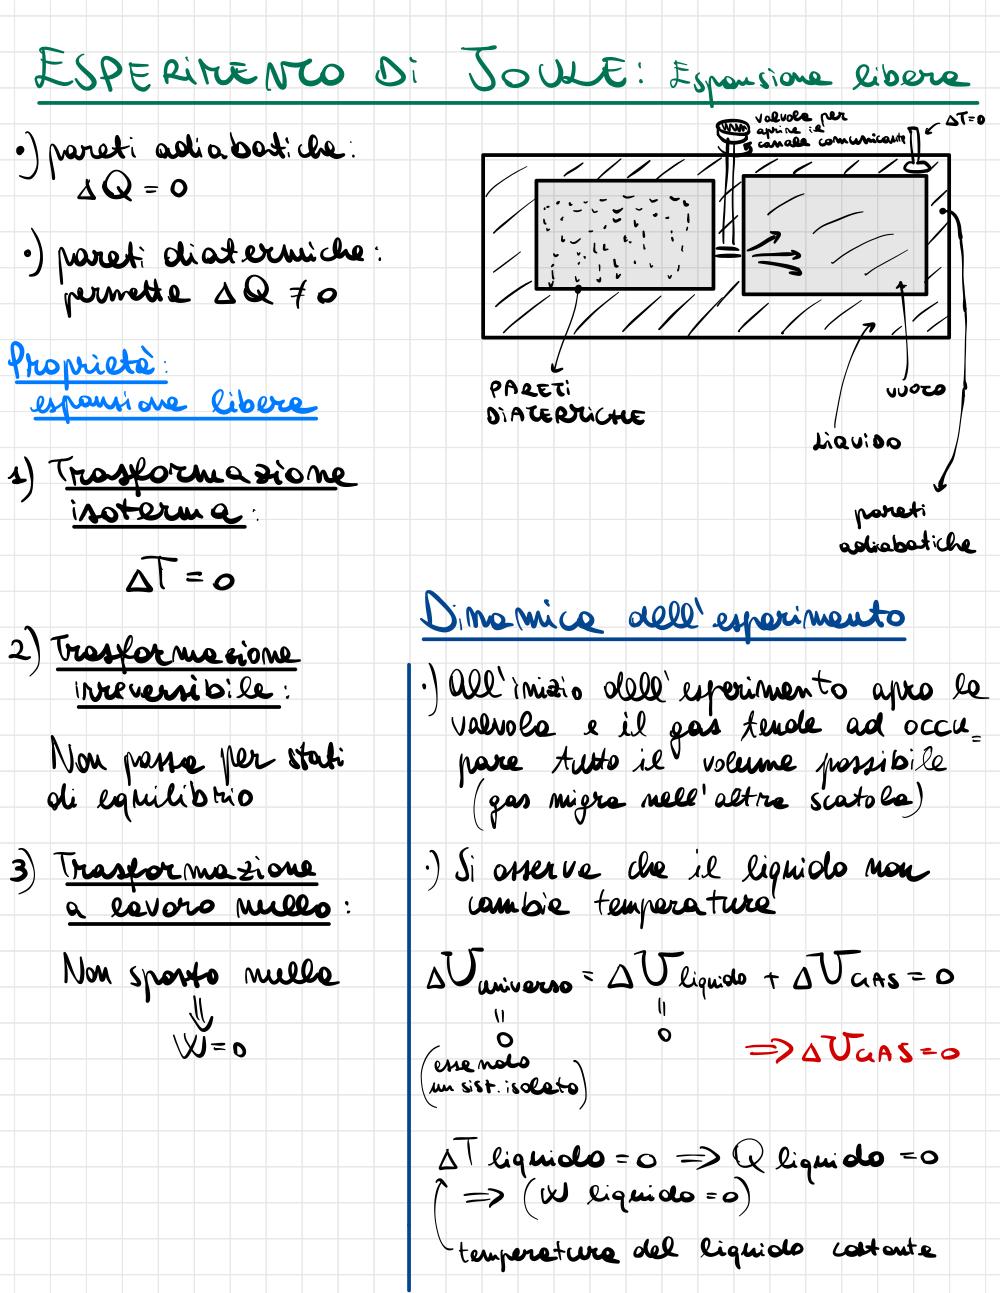 ESPERIMENTO DI JOULE: Espansione libera
•) pareti adiabatiche:
ΔQ = 0
•) pareti diatermiche:
permette ΔQ ≠ 0
valvola per
aprire il
canale comunicante
ΔT=0
PARETI
DIATERMICHE
VUOTO
LIQUIDO
pareti
adiabatiche
Proprietà:
espansione libera
1) Trasformazione
isoterma:
ΔT = 0
2) Trasformazione
irreversibile:
Non passa per stati
di equilibrio
3) Trasformazione
a lavoro nullo:
Non sposto nulla
⇓
W=0
Dinamica dell'esperimento
•) All'inizio dell'esperimento apro la
valvola e il gas tende ad occu=
pare tutto il volume possibile
(gas migra nell'altra scatola)
•) Si osserva che il liquido non
cambia temperatura
ΔU universo = ΔU liquido + ΔU GAS = 0
= =
0 0
(essendo
un sist. isolato)
⇒ ΔU GAS = 0
ΔT liquido = 0 ⇒ Q liquido = 0
⇒ (W liquido = 0)
temperatura del liquido costante